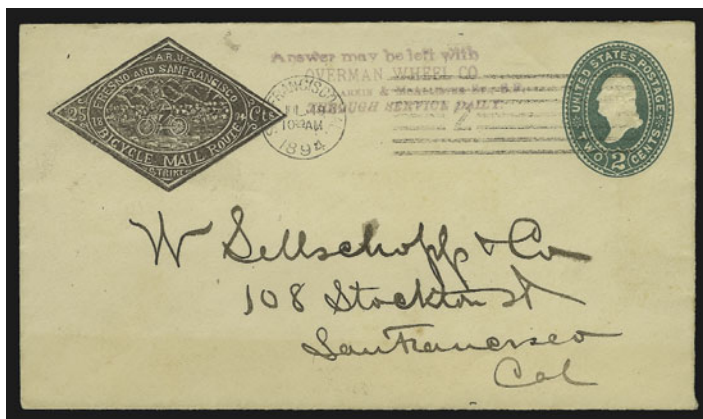 A.R.U.
FRESNO AND SANFRANCISCO
25 Cts
BICYCLE MAIL ROUTE
STRIKE
Answer may be left with
OVERMAN WHEEL CO.
THROUGH SERVICE DAILY.
FRANCISCO
10 AM
1894
UNITED STATES POSTAGE
TWO 2 CENTS
W Sellschopp & Co
108 Stockton St
San Francisco
Cal